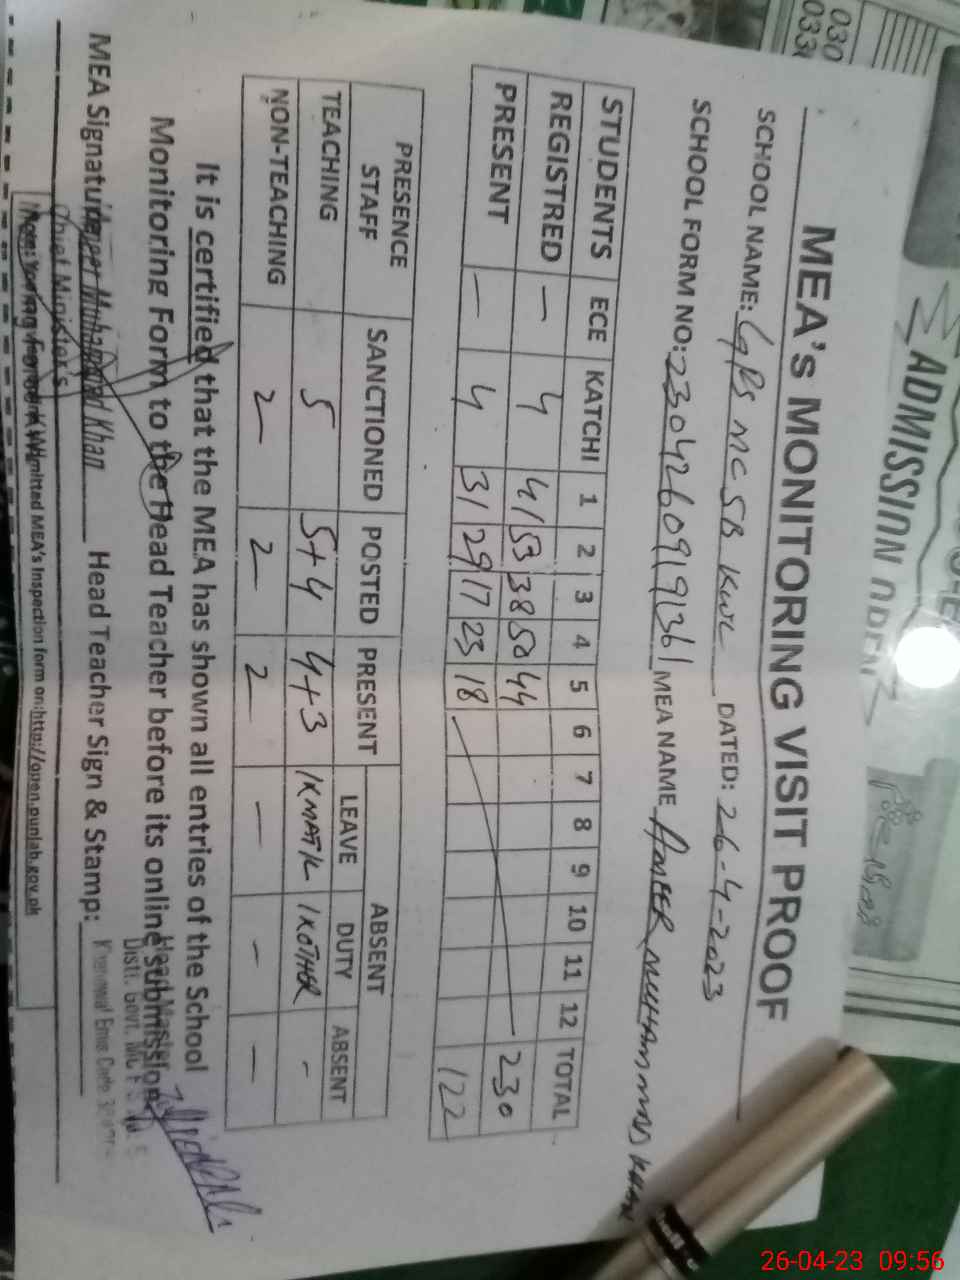 ADMISSION OPEN
030
033
MEA's MONITORING VISIT PROOF
SCHOOL NAME: GPS MC 5B KWL DATED: 26-4-2023
SCHOOL FORM NO: 230426091936 MEA NAME AMEER MUHAMMAD KHAN
STUDENTS ECE KATCHI 1 2 3 4 5 6 7 8 9 10 11 12 TOTAL
REGISTRED – 4 41 53 38 50 44 230
PRESENT – 4 31 29 17 23 18 122
PRESENCE STAFF SANCTIONED POSTED PRESENT ABSENT
LEAVE DUTY ABSENT
TEACHING 5 5+4 4+3 1KMATIL 1KOTHER -
NON-TEACHING 2 2 2 – - –
It is certified that the MEA has shown all entries of the School
Monitoring Form to the Head Teacher before its online submission
Head Master
Distt. Govt. MC
MEA Signature Ameer Muhammad Khan Head Teacher Sign & Stamp:
Khanewal Emis Code
Chief Minister's
Submitted MEA's Inspection form on:http://open.punjab.gov.pk
26-04-23 09:56